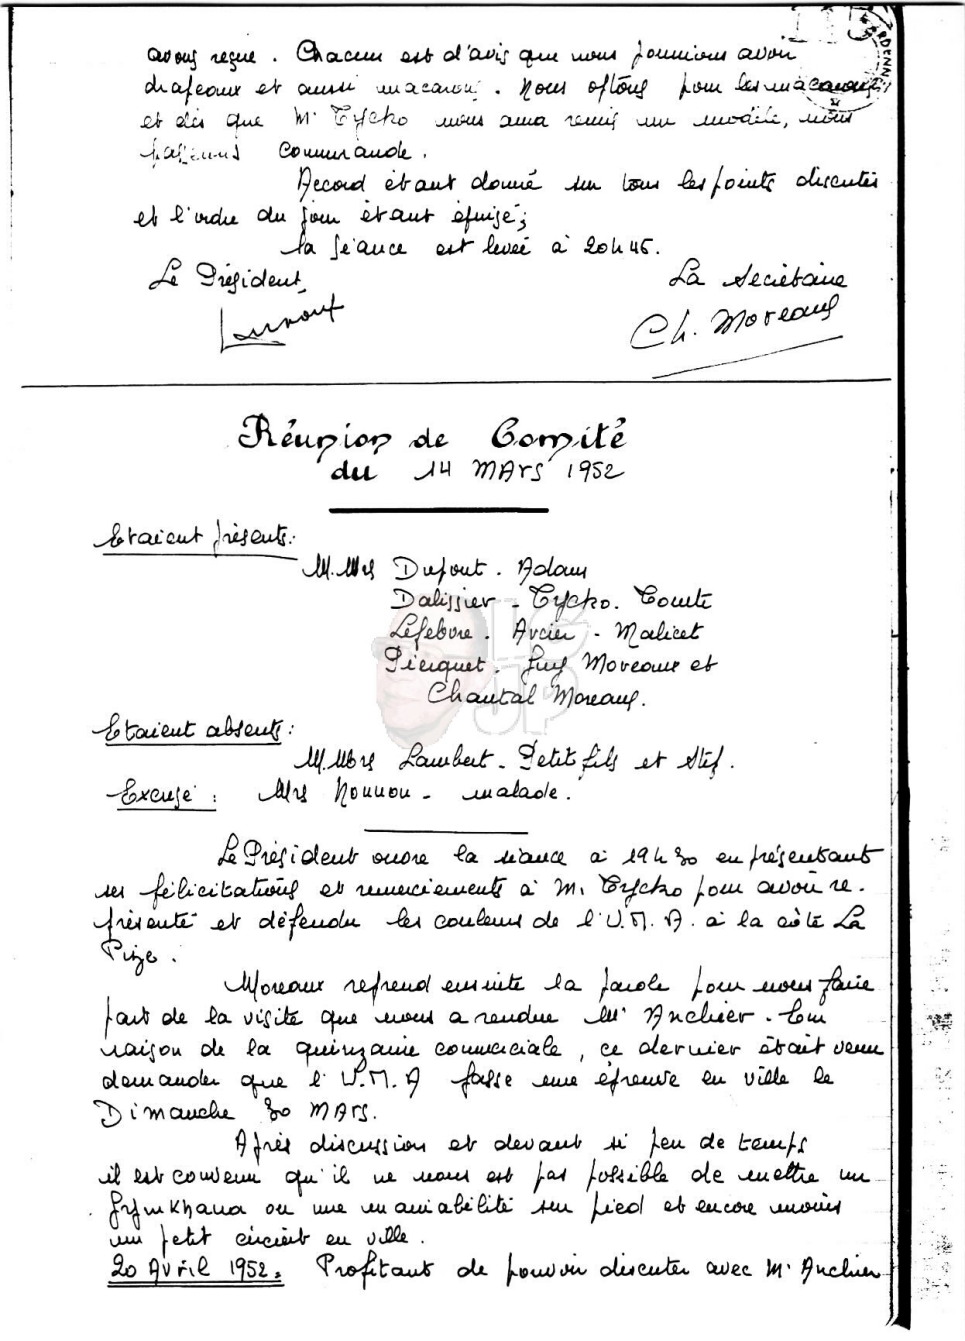 115
avons reçue. Chacun est d'avis que nous pourrions avoir
drapeaux et aussi macarons. Nous optons pour les macarons
et dès que Mr Tycko nous aura remis un modèle, nous
passerons commande.
Accord étant donné sur tous les points discutés
et l'ordre du jour étant épuisé;
la séance est levée à 20h45.
Le Président,
La Secrétaire
Ch. Moreaux
Réunion de Comité
du 14 MArs 1952
Etaient présents:
M.Mrs Dupont. Adam
Dalissier - Tycko. Comte
Lefebvre. Arcier - Malicet
Pierquet. Guy Moreaux et
Chantal Moreaux.
Etaient absents:
M.Mrs Lambert - Petitfils et Stef.
Excusé: Mrs Nounou - malade.
Le Président ouvre la séance à 19h30 en présentant
ses félicitations et remerciements à M. Tycko pour avoir re-
présenté et défendu les couleurs de l'U.M.A. à la côte La
Pize.
Moreaux reprend ensuite la parole pour nous faire
part de la visite que nous a rendue Mr Anchier. En
raison de la quinzaine commerciale, ce dernier était venu
demander que l'U.M.A fasse une épreuve en ville le
Dimanche 30 MArs.
Après discussion et devant si peu de temps
il est convenu qu'il ne nous est pas possible de mettre un
Gymkhana ou une maniabilité sur pied et encore moins
un petit circuit en ville.
20 Avril 1952. Profitant de pouvoir discuter avec Mr Anchier